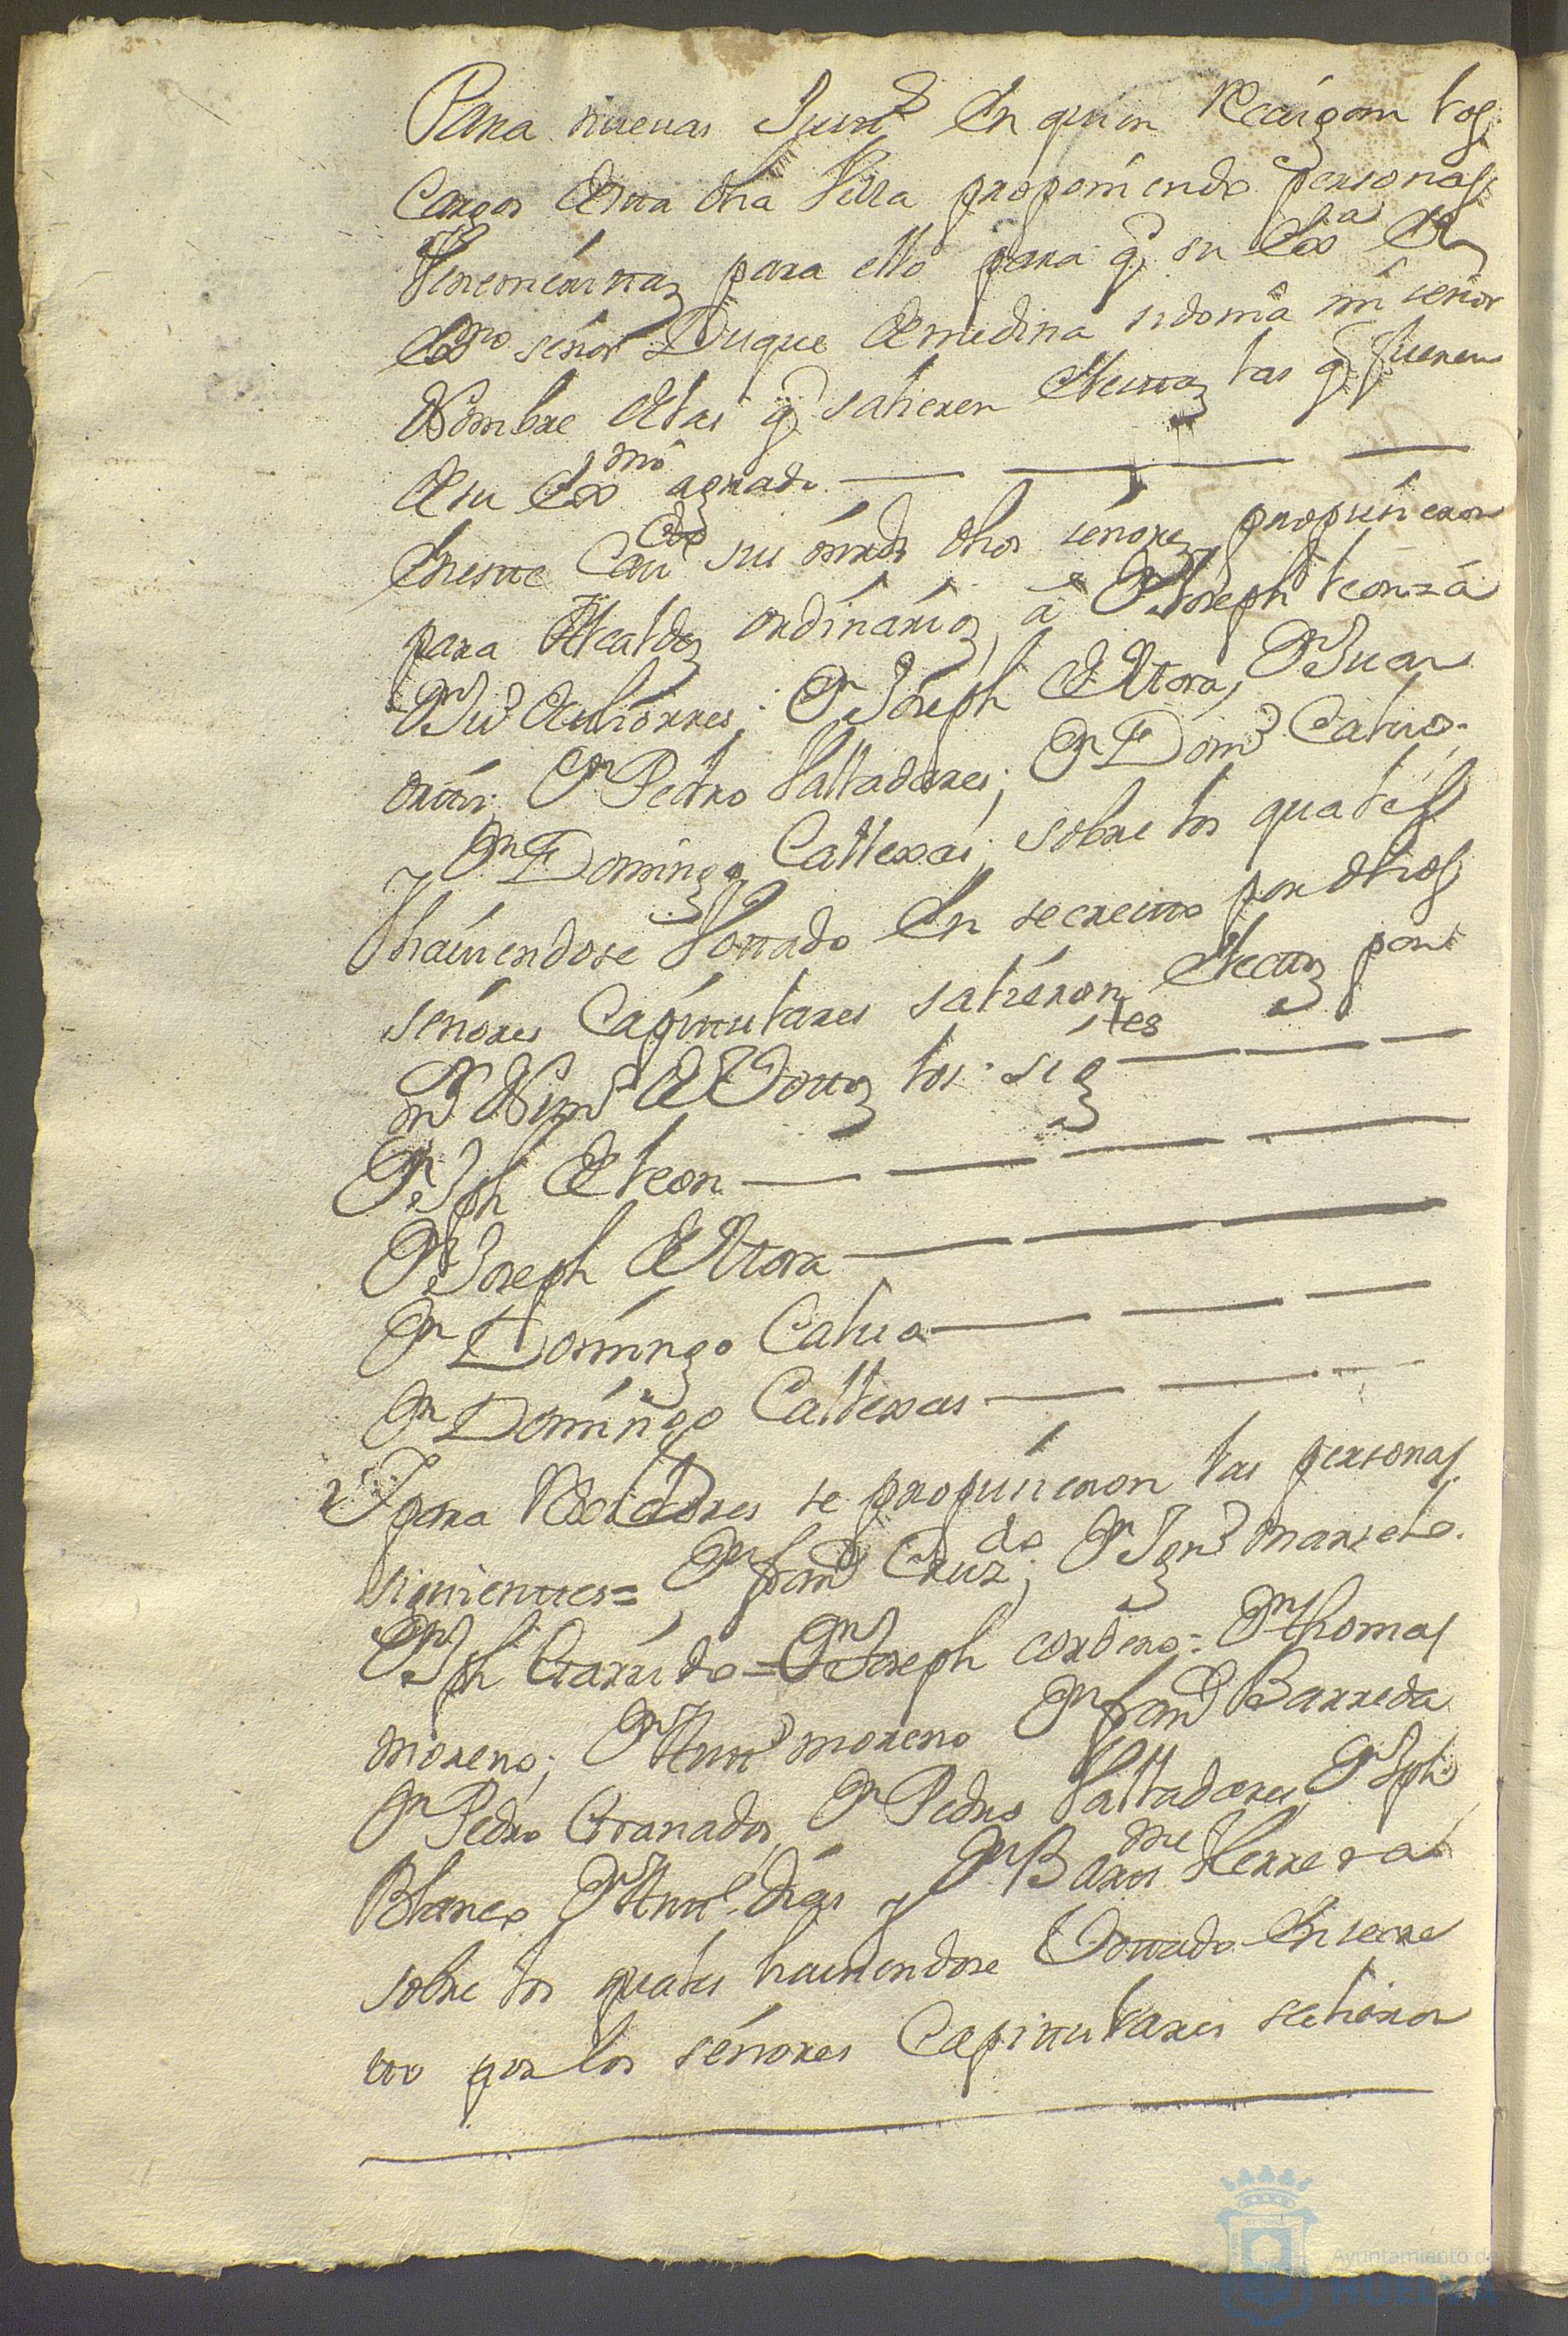 Para nueuas Just.s En quien Recaigan los
Cargos desta dha Villa proponiendo personas
Venemeritas para ello para q. su Exa El
Exmo señor Duque de medina sidonia mi señor
Nombre de las q. salieren Electas las q. fueren
de su Exmo agrado
En este Caudo sus mrds dhos señores propusieron
para Alcaldes ordinarios, a Dn Joseph leon =a
Dn Jun Gutiorres; Dn Joseph de Mora, Dn Juan
ortis; Dn Pedro Valladares; Dn Domo Caluo;
Dn Domingo Callexas; sobre los quales
Y hauiendose Vottado En secretto por dhos
señores Capittulares salieron Electos por
mr Numo de Vottos los sigtes
Dn Jph de leon
Dn Joseph de Mora
Dn Domingo Caluo
Dn Domingo Callexas
Y para Rexidores se propusieron las personas
siguienttes= Dn franco Cruzdo; Dn Igno Marselo.
Dn Jph Garrido = Dn Joseph cordero = Dn thomas
moreno; Dn Antto moreno Dn franco Barreda
Dn Pedro Granados, Dn Pedro Valladares, Dn Jph
Blanco Dn Antto dias y Dn Barme Herrera
sobre los quales hauiendose Vottado En secre
tto por los señores Capittulares salieron
Ayuntamiento de
HUELVA